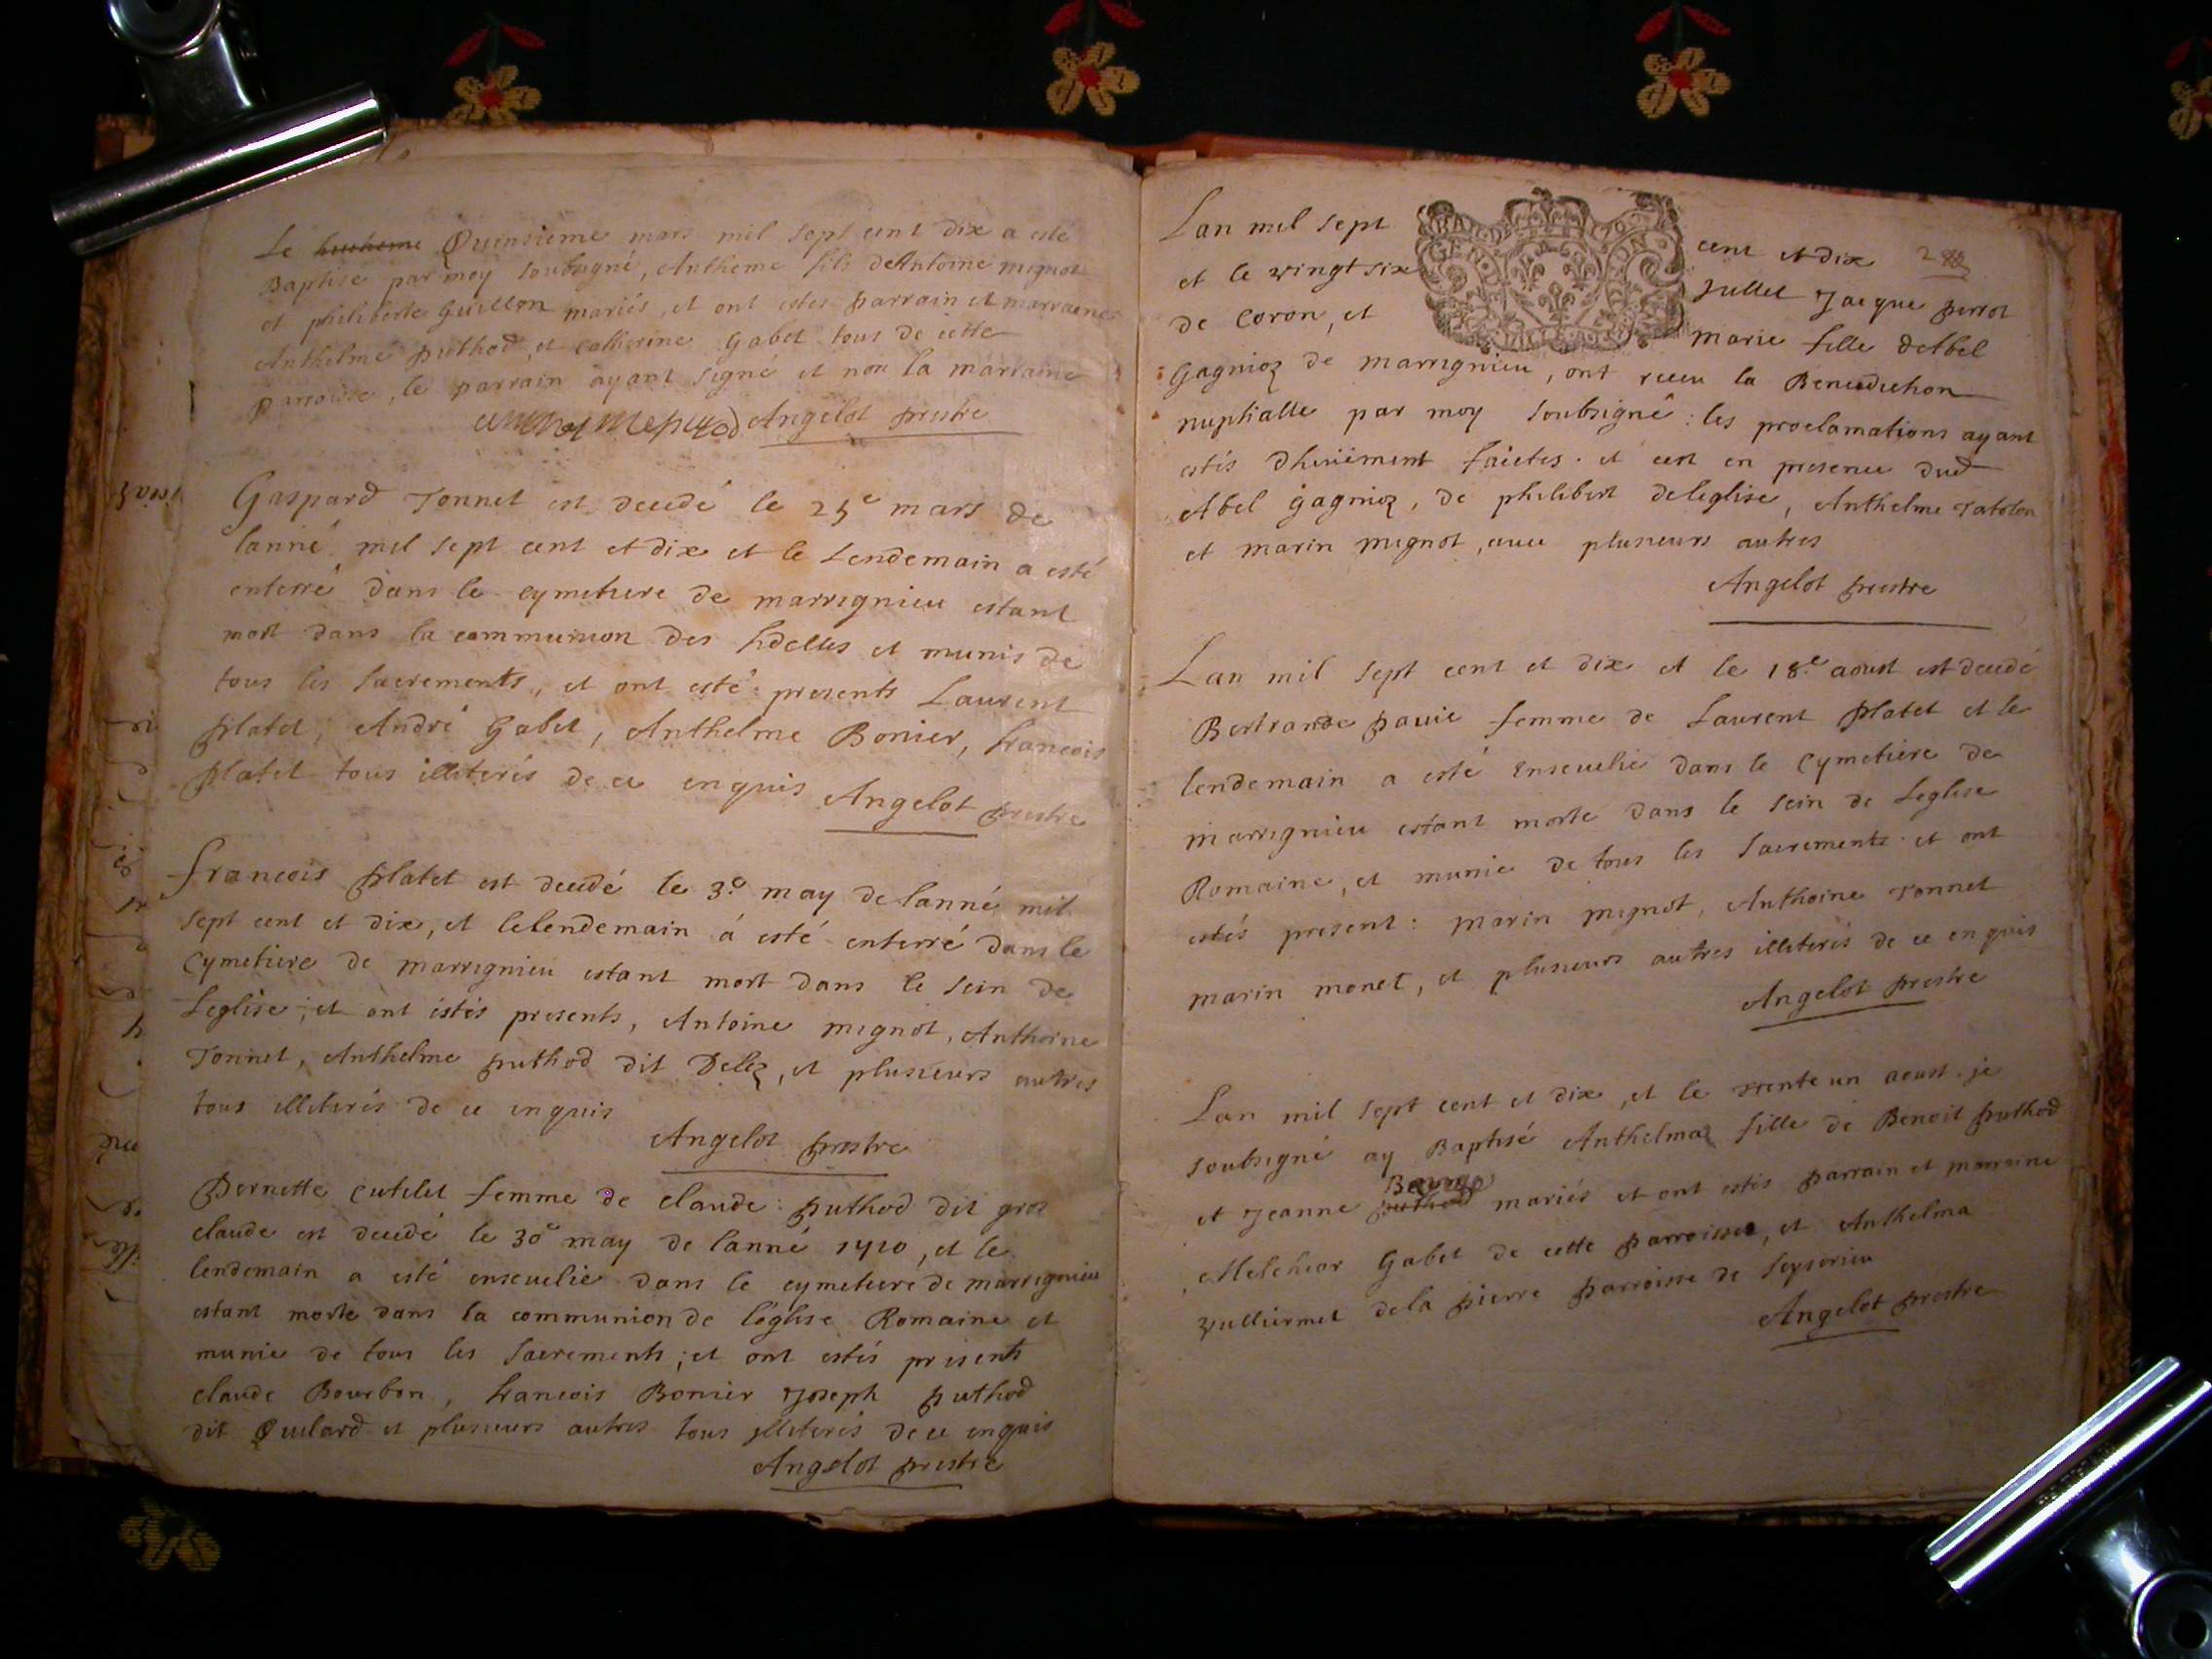 Le huitieme Quinsieme mars mil sept cent dix a esté
Baptisé par moy soubsigné, Antheme fils de Antoine mignot
et philiberte Guillon mariés, et ont estes parrain et marraine
Anthelme puthod, et Catherine Gabet tous de cette
parroisse, le parrain ayant signé et non la marraine
Angelot prestre
Gaspard Tonnet est decedé le 25e mars de
lanné mil sept cent et dix et le Lendemain a esté
enterré dans le cymetiere de marrignieu estant
mort dans la communion des fidelles et munis de
tous les sacrements, et ont esté presents Laurent
platet, André Gabet, Anthelme Bonier, francois
platet tous illiterés de ce enquis Angelot prestre
francois platet est decedé le 3e may de lanné mil
sept cent et dix, et le lendemain á esté enterré dans le
Cymetiere de marrignieu estant mort dans le sein de
Leglise; et ont estés presents, Antoine mignot, Anthoine
Tonnet, Anthelme puthod dit Delez, et plusieurs autres
tous illiterés de ce enquis
Angelot prestre
Pernette Cutelet femme de claude puthod dit gros
claude est decedé le 30e may de lanné 1710, et le
lendemain a esté enseuelie dans le cymetiere de marrignieu
estant morte dans la communion de léglise Romaine et
munie de tous les sacrements; et ont estés presents
claude Bourbon, francois Bonier Joseph puthod
dit Quilard et plusieurs autres tous illiterés de ce enquis
Angelot prestre
Lan mil sept cent et dix
et le vingt six Jullet Jacque perrot
de Coron, et marie fille dAbel
Gagnioz de marrignieu, ont receu la Benediction
nuptialle par moy soubsigné: les proclamations ayant
estés dheuëment faictes. et cest en presence dud
Abel gagnioz, de philibert deleglise, Anthelme
et marin mignot, avec plusieurs autres
Angelot prestre
Lan mil sept cent et dix et le 18e aoust est decedé
Bertrande pavie femme de Laurent platet et le
lendemain a esté enseuelie dans le Cymetiere de
marrignieu estant morte dans le sein de Leglise
Romaine, et munie de tous les sacrements. et ont
estés present: marin mignot, Anthoine Tonnet
marin monet, et plusieurs autres illiterés de ce enquis
Angelot prestre
Lan mil sept cent et dix, et le trente un aoust. je
soubsigné ay Baptisé Anthelma fille de Benoit puthod
et Jeanne puthod mariés et ont estés parrain et marraine
Melchior Gabet de cette parroisse, et Anthelma
vulliermet dela pierre parroisse de seyserieu
Angelot prestre